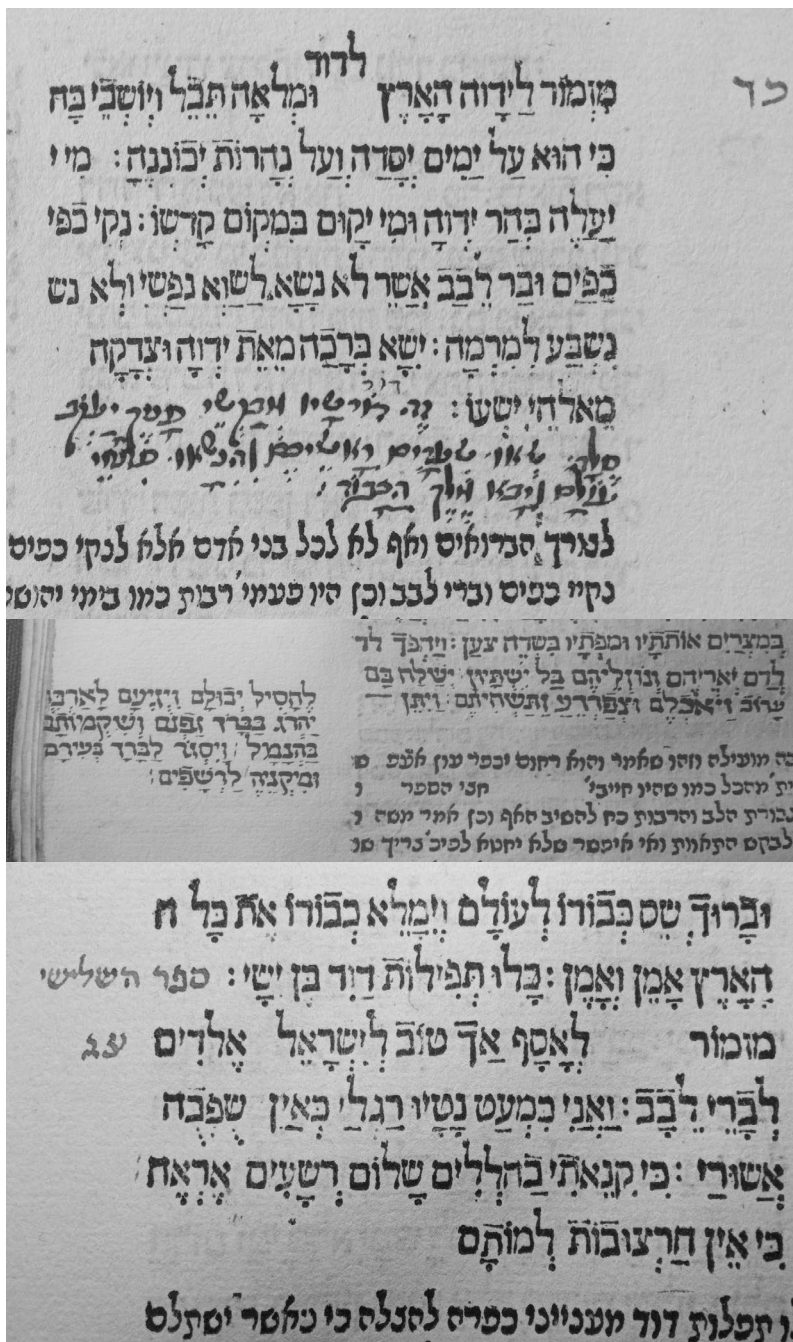 לדוד
מזמור לידוה הארץ ומלאה תבל ויושבי בה כד
כי הוא על ימים יסדה ועל נהרות יכוננה: מי י
יעלה בהר ידוה ומי יקום במקום קדשו: נקי כפי
כפים ובר לבב אשר לא נשא לשוא נפשי ולא נש
נשבע למרמה: ישא ברכה מאת ידוה וצדקה
דור
מאלהי ישעו: זה דורשיו מבקשי פניך יעקב
סלה: שאו שערים ראשיכם והנשאו פתחי
עולם ויבא מלך הכבוד:
לצורך הברואים ואף לא לכל בני אדם אלא לנקי כפים
נקיי כפים וברי לבב וכן היו פעמי' רבות כמו בימי יהושע
במצרים אותתיו ומפתיו בשדה צען: ויהפך לד
לדם יאריהם ונוזליהם בל ישתיון: ישלח בם
ערוב ויאכלם וצפרדע ותשחיתם: ויתן
להחסיל יבולם ויגיעם לארבה
יהרג בברד גפנם ושקמותם
בחנמל: ויסגר לברד בעירם
ומקניה לרשפים:
מועילה וזהו שאמר והוא רחום יכפר עון אעפ
ית' מהכל כמו שהיו חייבי' חצי הספר
גבורת הלב והרבות כח להשיב האף וכן אמר משה
לבקש התאוות ואי איפשר שלא יחטא לפיכ' צריך
וברוך שם כבודו לעולם וימלא כבודו את כל ה
הארץ אמן ואמן: כלו תפילות דוד בן ישי: ספר השלישי
מזמור לאסף אך טוב לישראל אלדים עג
לברי לבב: ואני כמעט נטיו רגלי כאין שפכה
אשורי: כי קנאתי בהללים שלום רשעים אראה
כי אין חרצובות למותם
תפלות דוד מענייני כפרה להצלה כי כאשר ישתלם